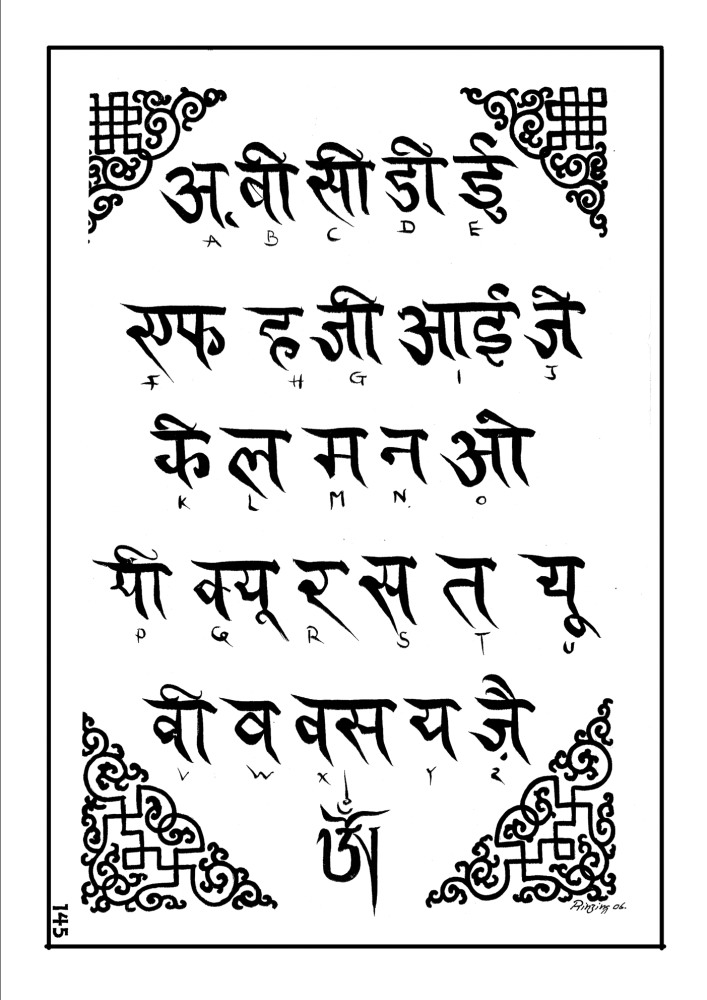 अ बी सी डी ई
A B C D E
एफ ह जी आई जे
F H G I J
के ल म न ओ
K L M N O
पी क्यू र स त यू
P Q R S T U
वी व वस य ज़ै
V W X Y Z
ॐ
Rinzing 06.
145